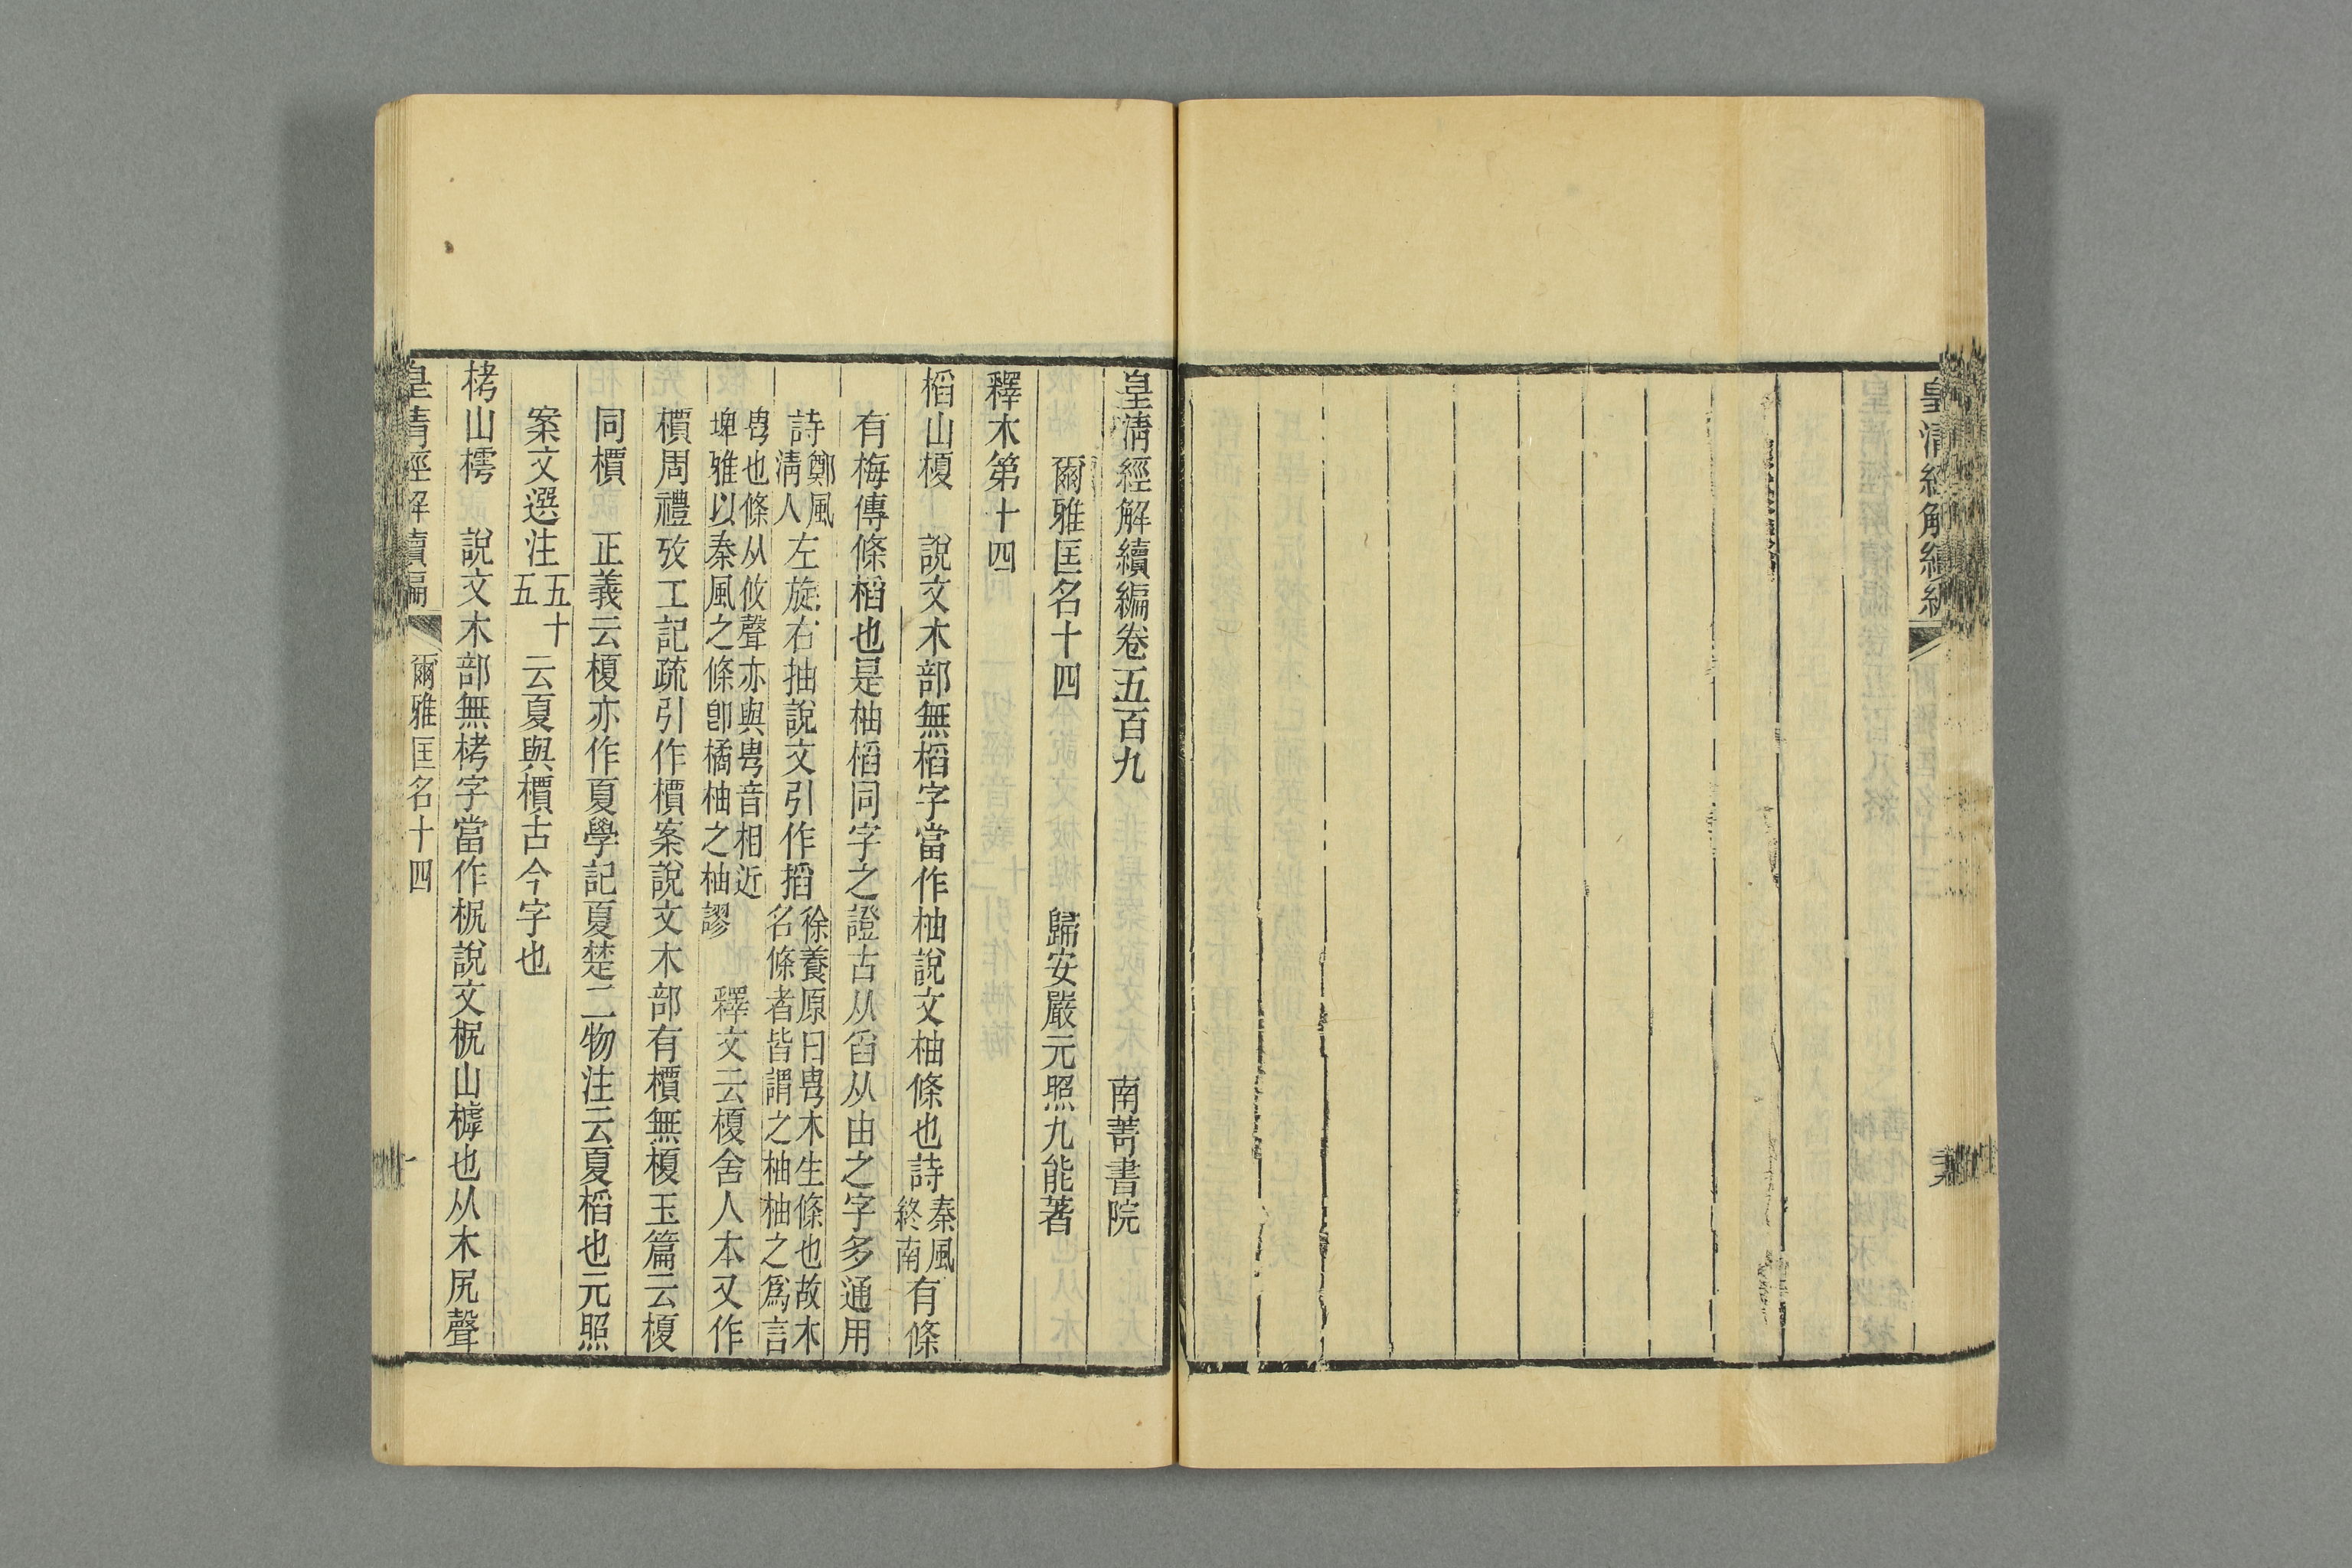 皇清經解續編
皇清經解續編卷五百九
南菁書院
爾雅匡名十四
歸安嚴元照九能著
釋木第十四
稻山榎 說文木部無稻字當作柚說文柚條也詩秦風終南有條
有梅傳條稻也是柚稻同字之證古从舀从由之字多通用
詩鄭風清人左旋右抽說文引作搯徐養原曰甹木生條也故木名條者皆謂之柚柚之爲言
甹也條从攸聲亦與甹音相近埤雅以秦風之條卽橘柚之柚謬 釋文云榎舍人本又作
檟周禮攷工記疏引作檟案說文木部有檟無榎玉篇云榎
同檟 正義云榎亦作夏學記夏楚二物注云夏稻也元照
案文選注五十五云夏與檟古今字也
栲山樗 說文木部無栲字當作㭒說文㭒山樗也从木尻聲
皇清經解續編 爾雅匡名十四 一